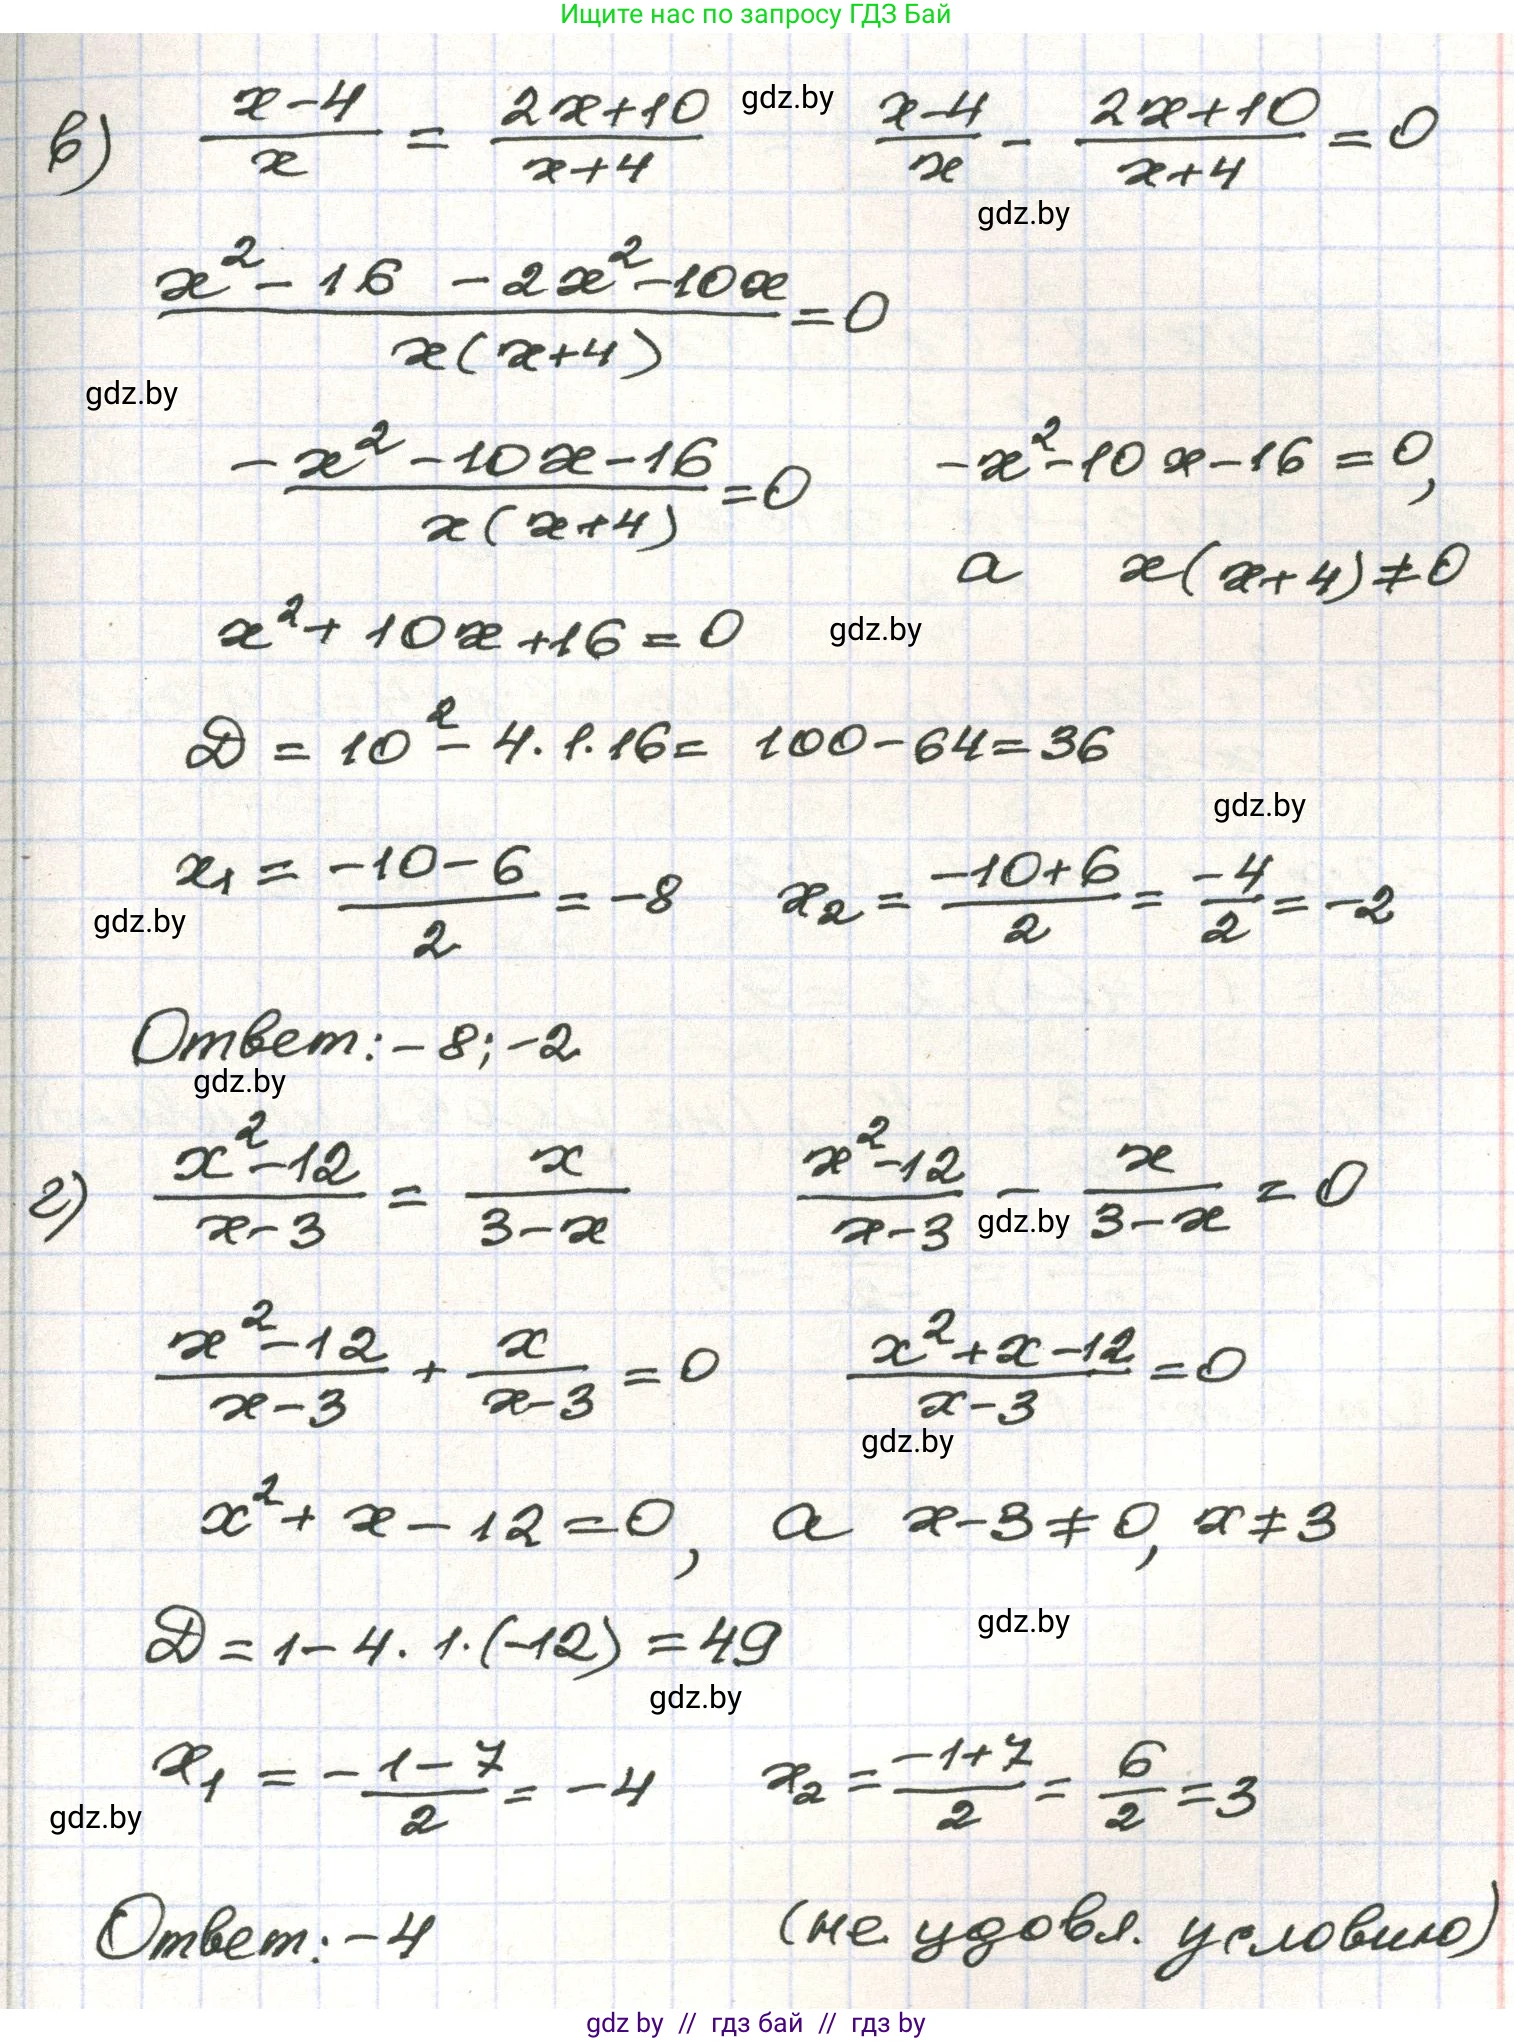 Ищите нас по запросу ГДЗ Бай
в) (x-4)/x = (2x+10)/(x+4) gdz.by (x-4)/x - (2x+10)/(x+4) = 0
gdz.by
(x²-16 -2x²-10x)/(x(x+4)) = 0
gdz.by
(-x²-10x-16)/(x(x+4)) = 0 -x²-10x-16=0,
а x(x+4)≠0
x²+10x+16=0 gdz.by
D = 10²-4·1·16= 100-64=36
gdz.by
x₁ = (-10-6)/2 = -8 x₂ = (-10+6)/2 = -4/2 = -2
gdz.by
Ответ: -8; -2
gdz.by
г) (x²-12)/(x-3) = x/(3-x) (x²-12)/(x-3) - x/(3-x) = 0
gdz.by
(x²-12)/(x-3) + x/(x-3) = 0 (x²+x-12)/(x-3) = 0
gdz.by
x²+x-12=0, а x-3≠0, x≠3
gdz.by
D = 1-4·1·(-12) = 49
gdz.by
x₁ = (-1-7)/2 = -4 x₂ = (-1+7)/2 = 6/2 = 3
gdz.by
Ответ: -4 (не удовл. условию)
gdz by // гдз бай // гдз by